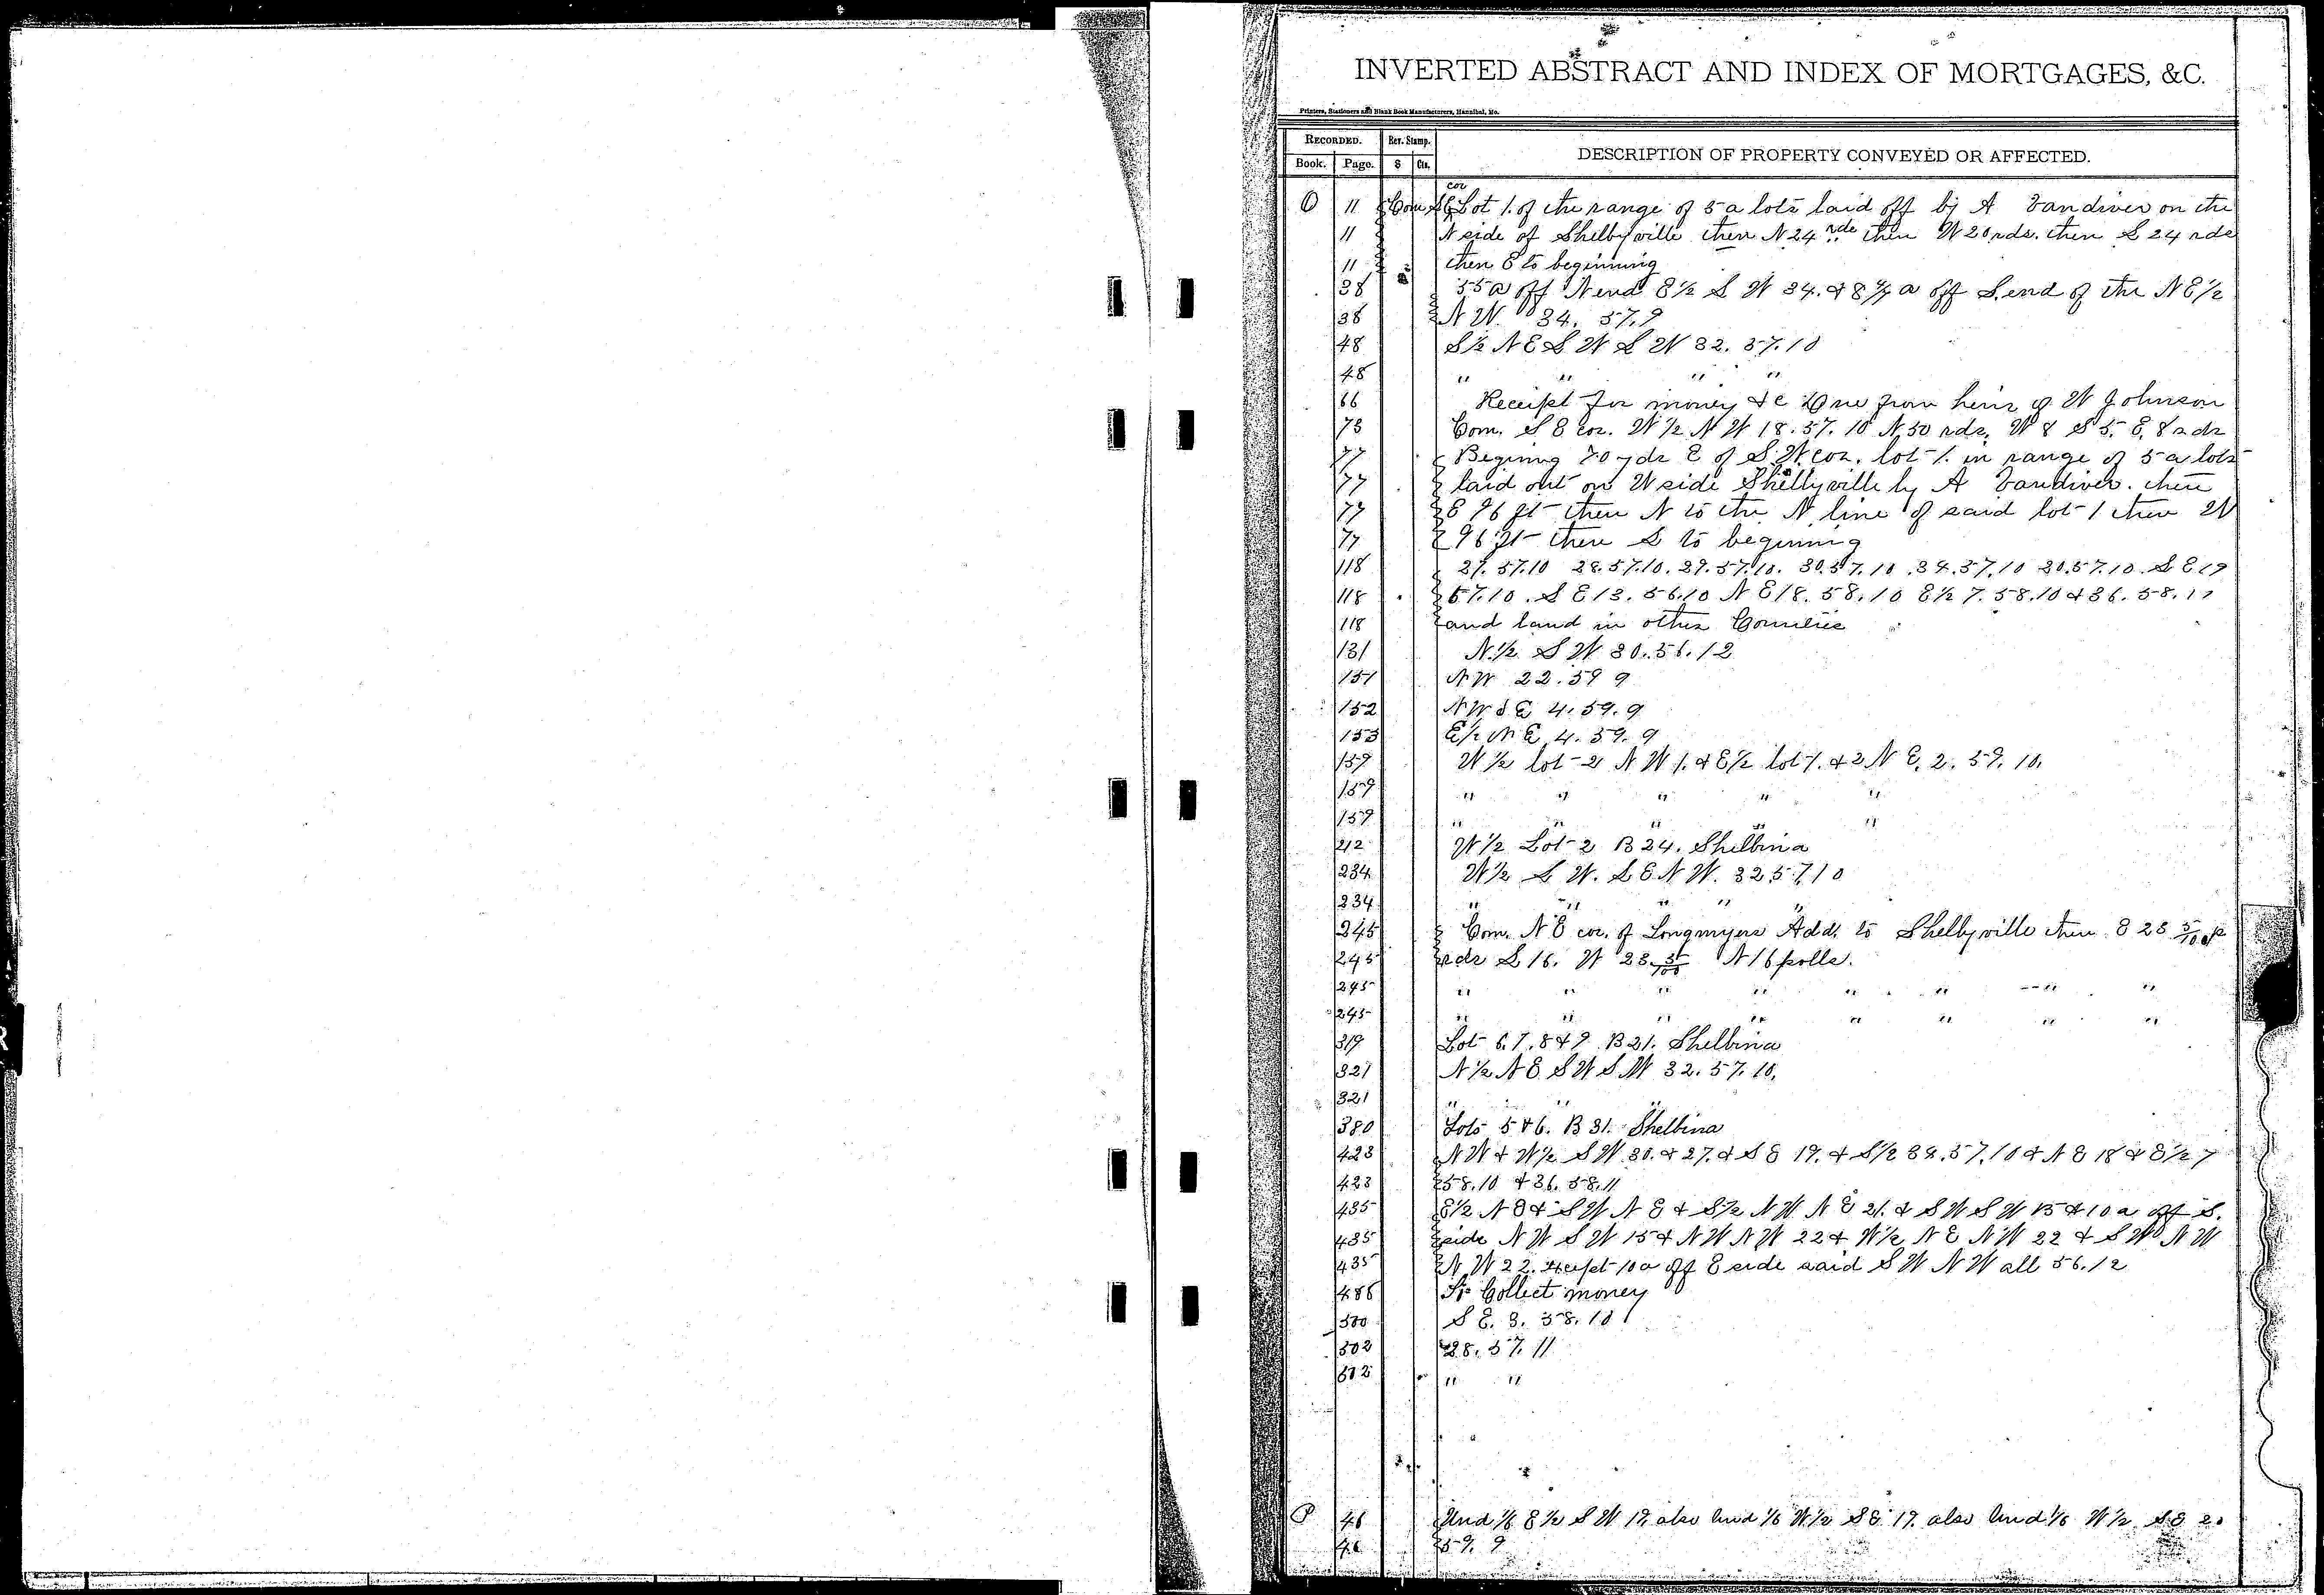 INVERTED ABSTRACT AND INDEX OF MORTGAGES, &C.
Printers, Stationers and Blank Book Manufacturers, Hannibal, Mo.
RECORDED. Rev. Stamp.
Book. Page. $ Cts. DESCRIPTION OF PROPERTY CONVEYED OR AFFECTED.
cor
O 11 Com S E Lot 1. of the range of 5 a lots laid off by A Vandiver on the
11 N side of Shelbyville then N 24 rds then W 20 rds. then S 24 rds
11 then E to beginning
38 55 a off N end E 1/2 S W 34. & 8 a off S. end of the N E 1/2
38 N W. 34. 57.9
48 S 1/2 N E S W S W 32. 57. 10
48 " " " "
66 Receipt for money &c Due from heirs of W Johnson
73 Com. S E cor. W 1/2 N W 18. 57. 10 N. 50 rds. W 8 S 5. E. 8 rds
77 Begining 70 yds E of S. W. cor. lot 1. in range of 5 a lots
77 laid out on N side Shelbyville by A Vandiver. then
77 E 96 ft then N to the N line of said lot 1 then W
77 96 ft then S to beginning
118 27. 57.10 28. 57.10. 29. 57.10. 30. 57.10. 34. 57.10 20. 57.10. S E 19
118 57.10. S E 13. 56.10 N E 18. 58.10 E 1/2 7. 58.10 & 36. 58. 11
118 and land in other Counties
131 N. 1/2 S W 30. 56. 12
151 N W 22. 59 9
152 N W S E 4. 59. 9
153 E 1/2 N E 4. 59. 9
159 W 1/2 lot 2 N W 1. & E 1/2 lot 1. & 2 N E. 2. 59. 10.
159 " " " " "
159 " " " " "
212 W 1/2 Lot 2 B 24. Shelbina
234 W 1/2 S W. S E N W. 32 57 10
234 " " " " "
245 Com. N E cor. of Longmyers Add. to Shelbyville then E 23 5/100
245 rds S 16. W 23 5/100 N 16 polls.
245 " " " " " " " "
245 " " " " " " " "
319 Lot 6. 7. 8 & 9 B 21. Shelbina
321 N 1/2 N E S W S W 32. 57. 10.
321 " " "
380 Lots 5 & 6. B 31. Shelbina
423 N W & W 1/2 S W 30. & 27. & S E 19. & S 1/2 34. 57. 10 & N E 18 & E 1/2 7
423 58. 10 & 36. 58. 11
435 E 1/2 N E & S W N E & S 1/2 N W N E 21. & S W S W 15 & 10 a off S.
435 side N W S W 15 & N W N W 22 & W 1/2 N E N W 22 & S W N W
435 N W 22. Except 10 a off E side said S W N W all 56. 12
486 To Collect money
500 S E. 3. 58. 10
502 28. 57. 11
502 " "
P 46 Und 1/6 E 1/2 S W 17. also Und 1/6 W 1/2 S E 17. also Und 1/6 W 1/2 S E 20
46 59. 9